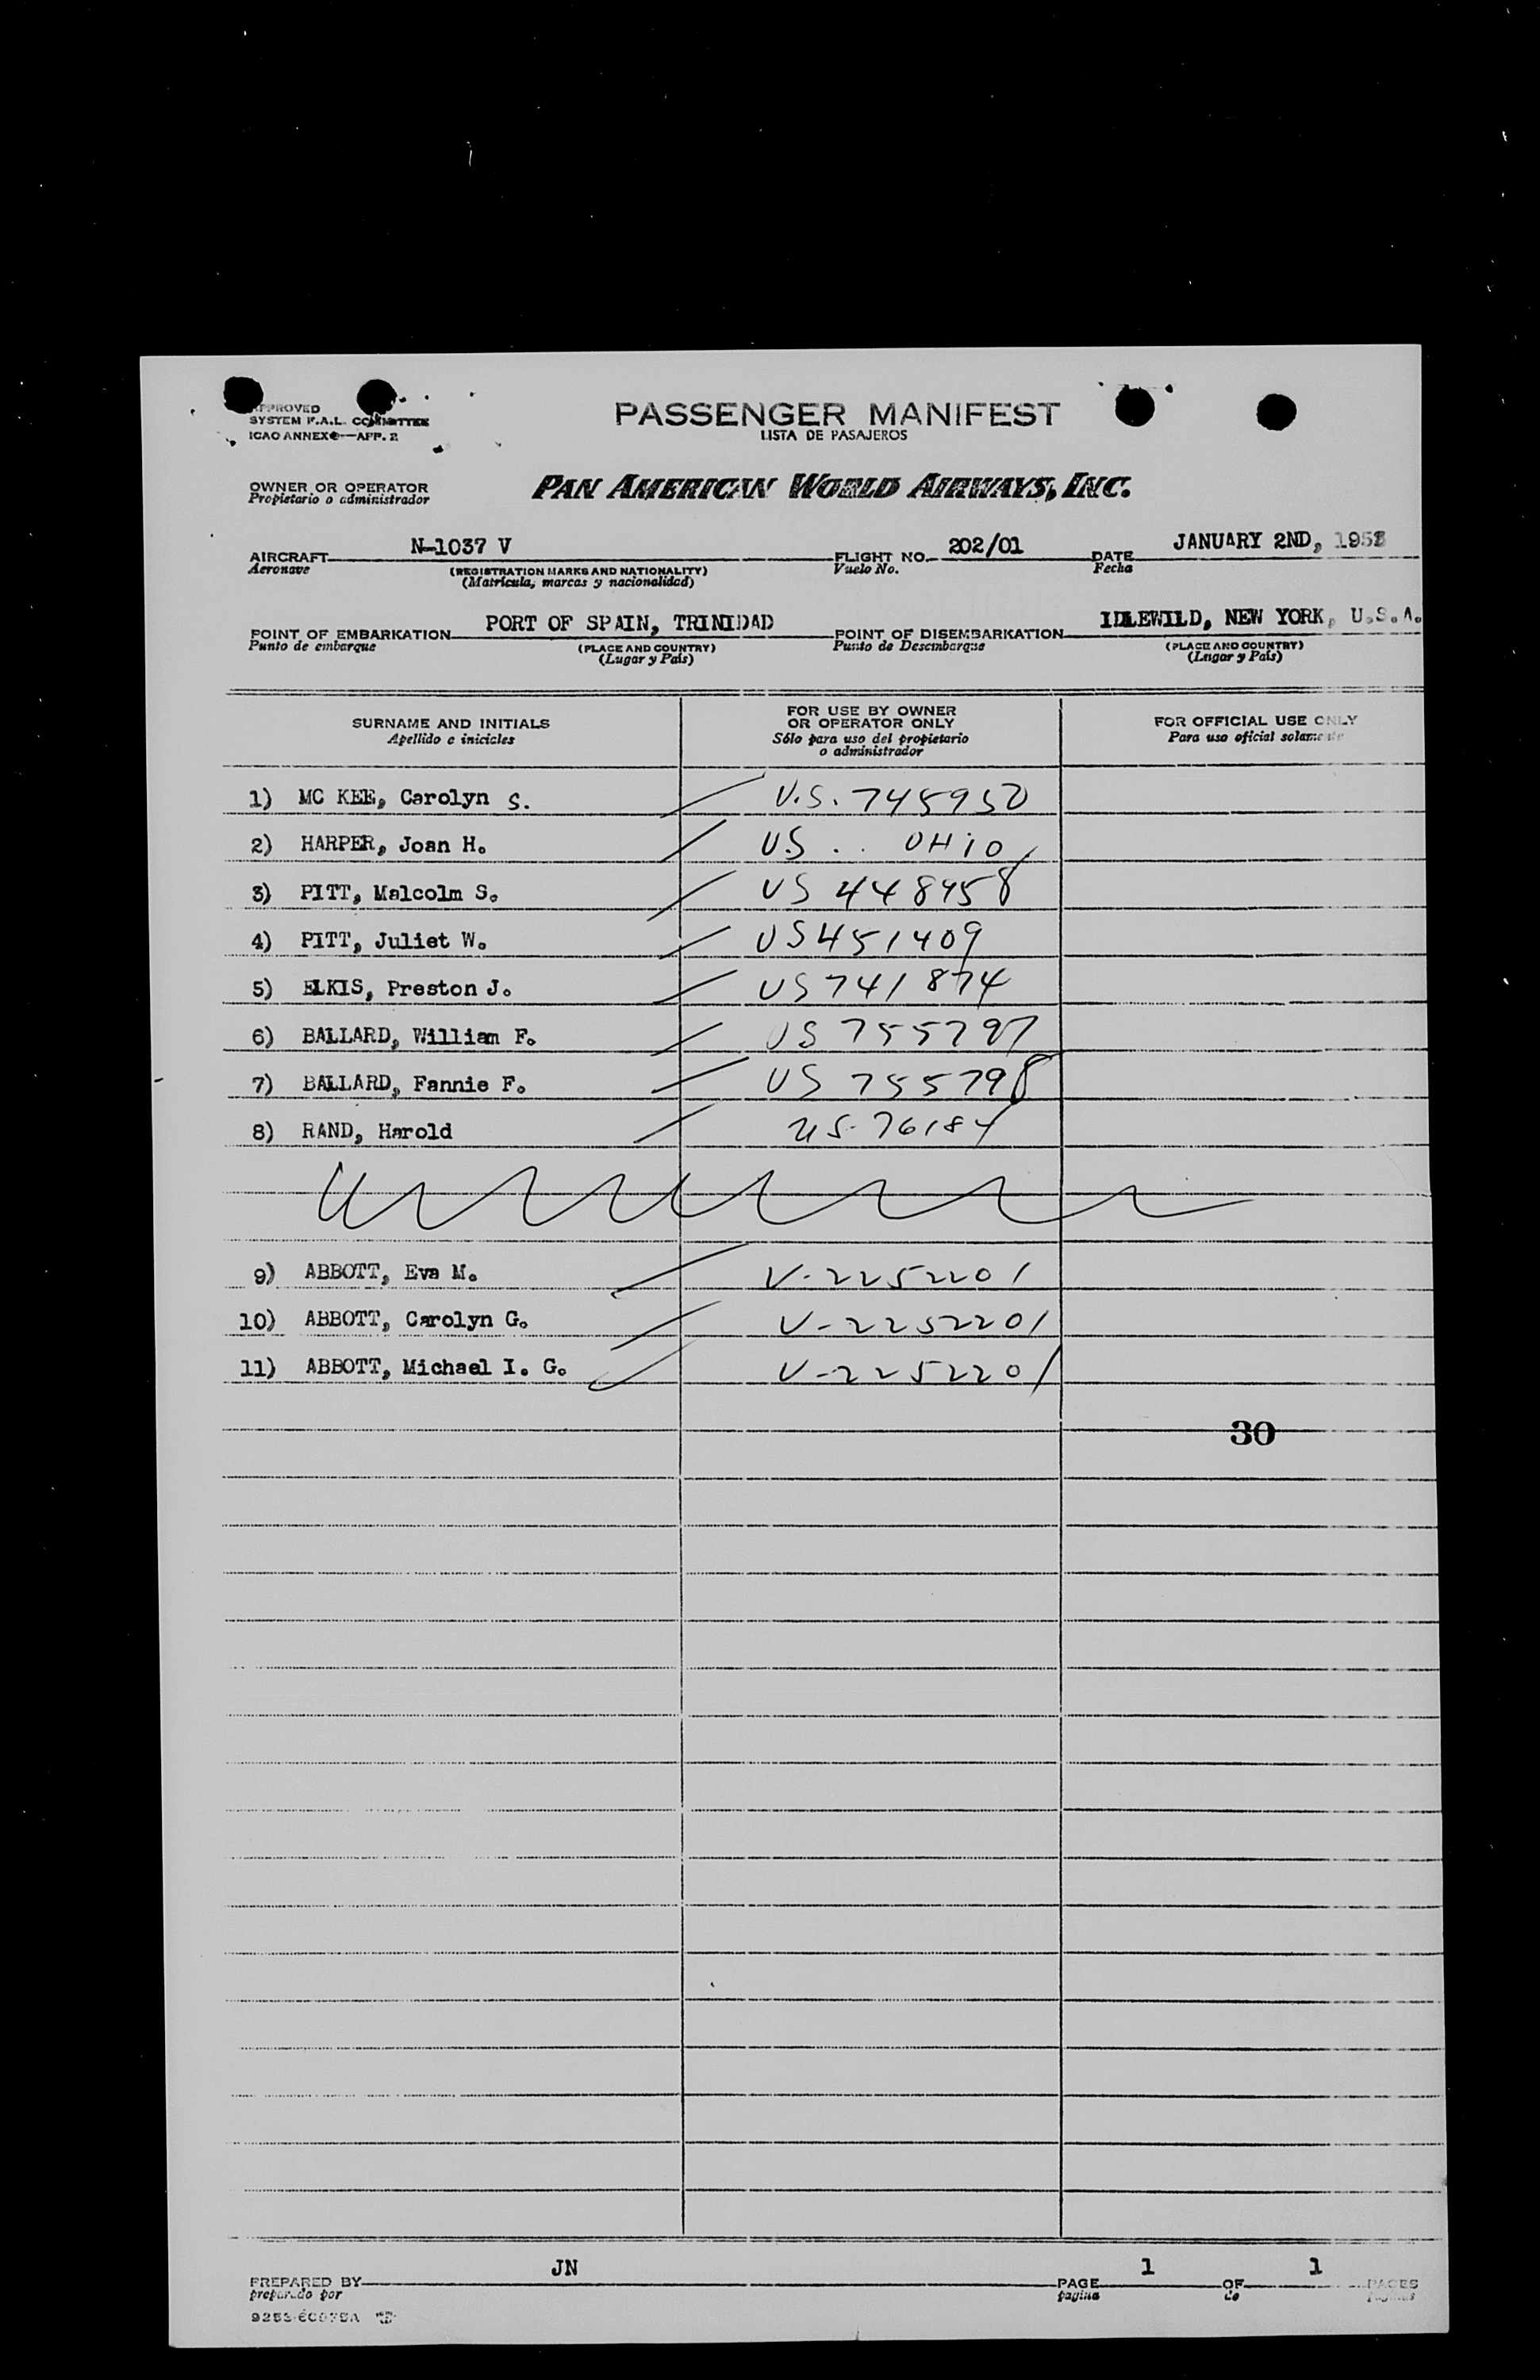 APPROVED
SYSTEM F.A.L. COMMITTEE
ICAO ANNEX 9—APP. 2
PASSENGER MANIFEST
LISTA DE PASAJEROS
OWNER OR OPERATOR
Propietario o administrador
PAN AMERICAN WORLD AIRWAYS, INC.
AIRCRAFT N-1037 V FLIGHT NO. 202/01 DATE JANUARY 2ND,
Aeronave (REGISTRATION MARKS AND NATIONALITY) Vuelo No. Fecha
(Matrícula, marcas y nacionalidad)
POINT OF EMBARKATION PORT OF SPAIN, TRINIDAD POINT OF DISEMBARKATION IDLEWILD, NEW YORK, U.S.A.
Punto de embarque (PLACE AND COUNTRY) Punto de Desembarque (PLACE AND COUNTRY)
(Lugar y País) (Lugar y País)
SURNAME AND INITIALS FOR USE BY OWNER OR OPERATOR ONLY FOR OFFICIAL USE ONLY
Apellido e iniciales Sólo para uso del propietario o administrador Para uso oficial solamente
1) MC KEE, Carolyn S. U.S. 745950
2) HARPER, Joan H. US .. OHIO
3) PITT, Malcolm S. US 448958
4) PITT, Juliet W. US 451409
5) ELKIS, Preston J. US 741874
6) BALLARD, William F. US 755797
7) BALLARD, Fannie F. US 755798
8) RAND, Harold US. 76184
9) ABBOTT, Eva M. V-2252201
10) ABBOTT, Carolyn G. V-2252201
11) ABBOTT, Michael I. G. V-2252201
30
PREPARED BY JN PAGE 1 OF 1 PAGES
preparado por pagina de paginas